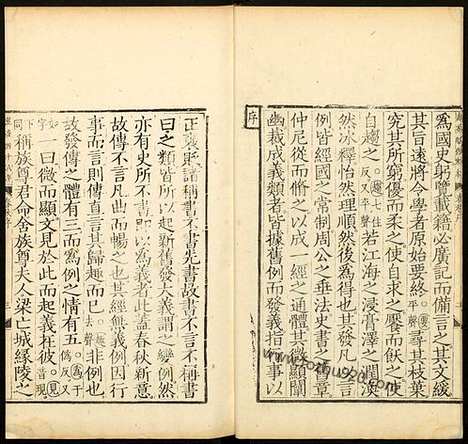 為國史躬覽載籍必廣記而備言之其文緩
其旨遠將令學者原始要終尋其枝葉
究其所窮優而柔之使自求之饜而飫之使
自趨之若江海之浸膏澤之潤渙
然冰釋怡然理順然後為得也其發凡以言
例皆經國之常制周公之垂法史書之舊章
仲尼從而脩之以成一經之通體其微顯闡
幽裁成義類者皆據舊例而發義指行事以
正褒貶諸稱書不書先書故書不言不稱書
曰之類皆所以起新舊發大義謂之變例然
亦有史所不書即以為義者此蓋春秋新意
故傳不言凡曲而暢之也其經無義例因行
事而言則傳直言其歸趣而已非例也
故發傳之體有三而為例之情有五
一曰微而顯文見於此而起義在彼
稱族尊君命舍族尊夫人梁亡城緣陵之
序